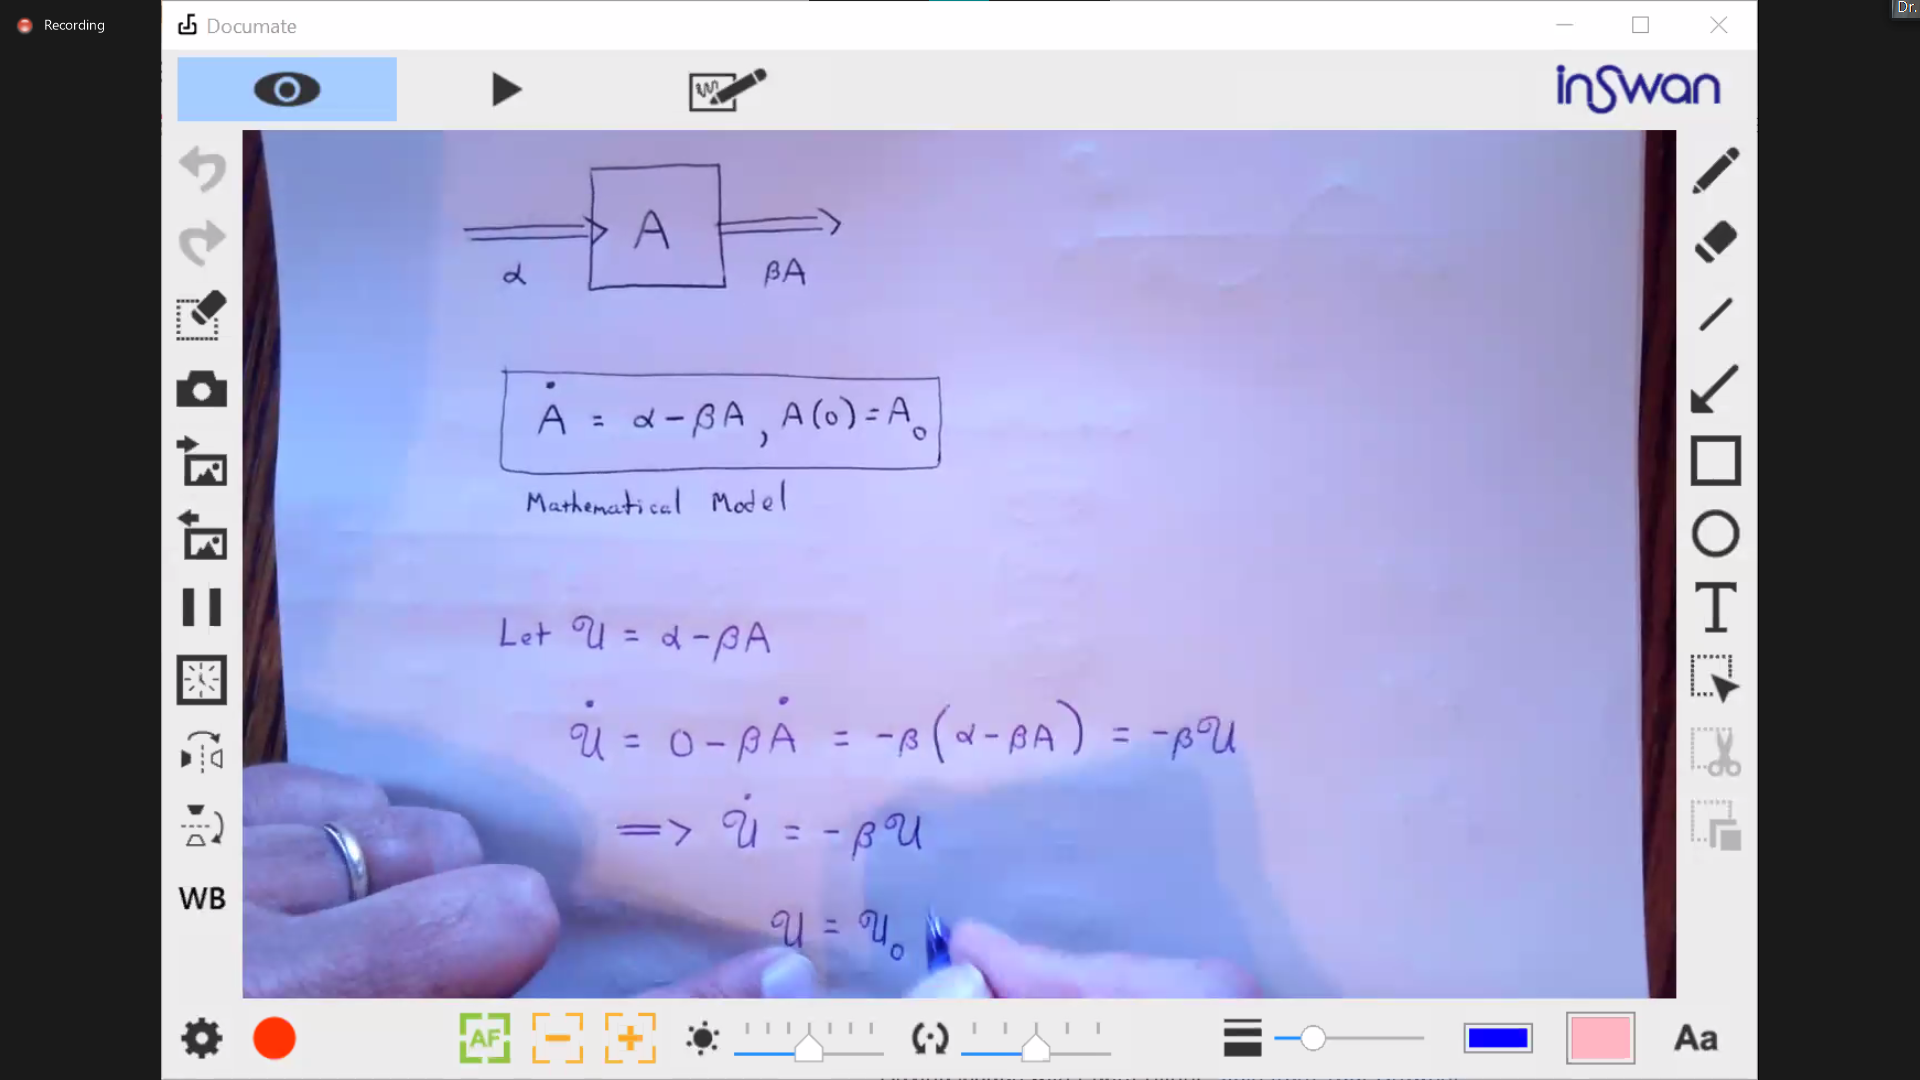 Recording
Documate
Dr.
inSwan
A
α
βA
Ȧ = α - βA, A(0) = A₀
Mathematical Model
Let U = α - βA
U̇ = 0 - βȦ = -β(α - βA) = -βU
⟹ U̇ = -βU
U = U₀
T
WB
AF
Aa